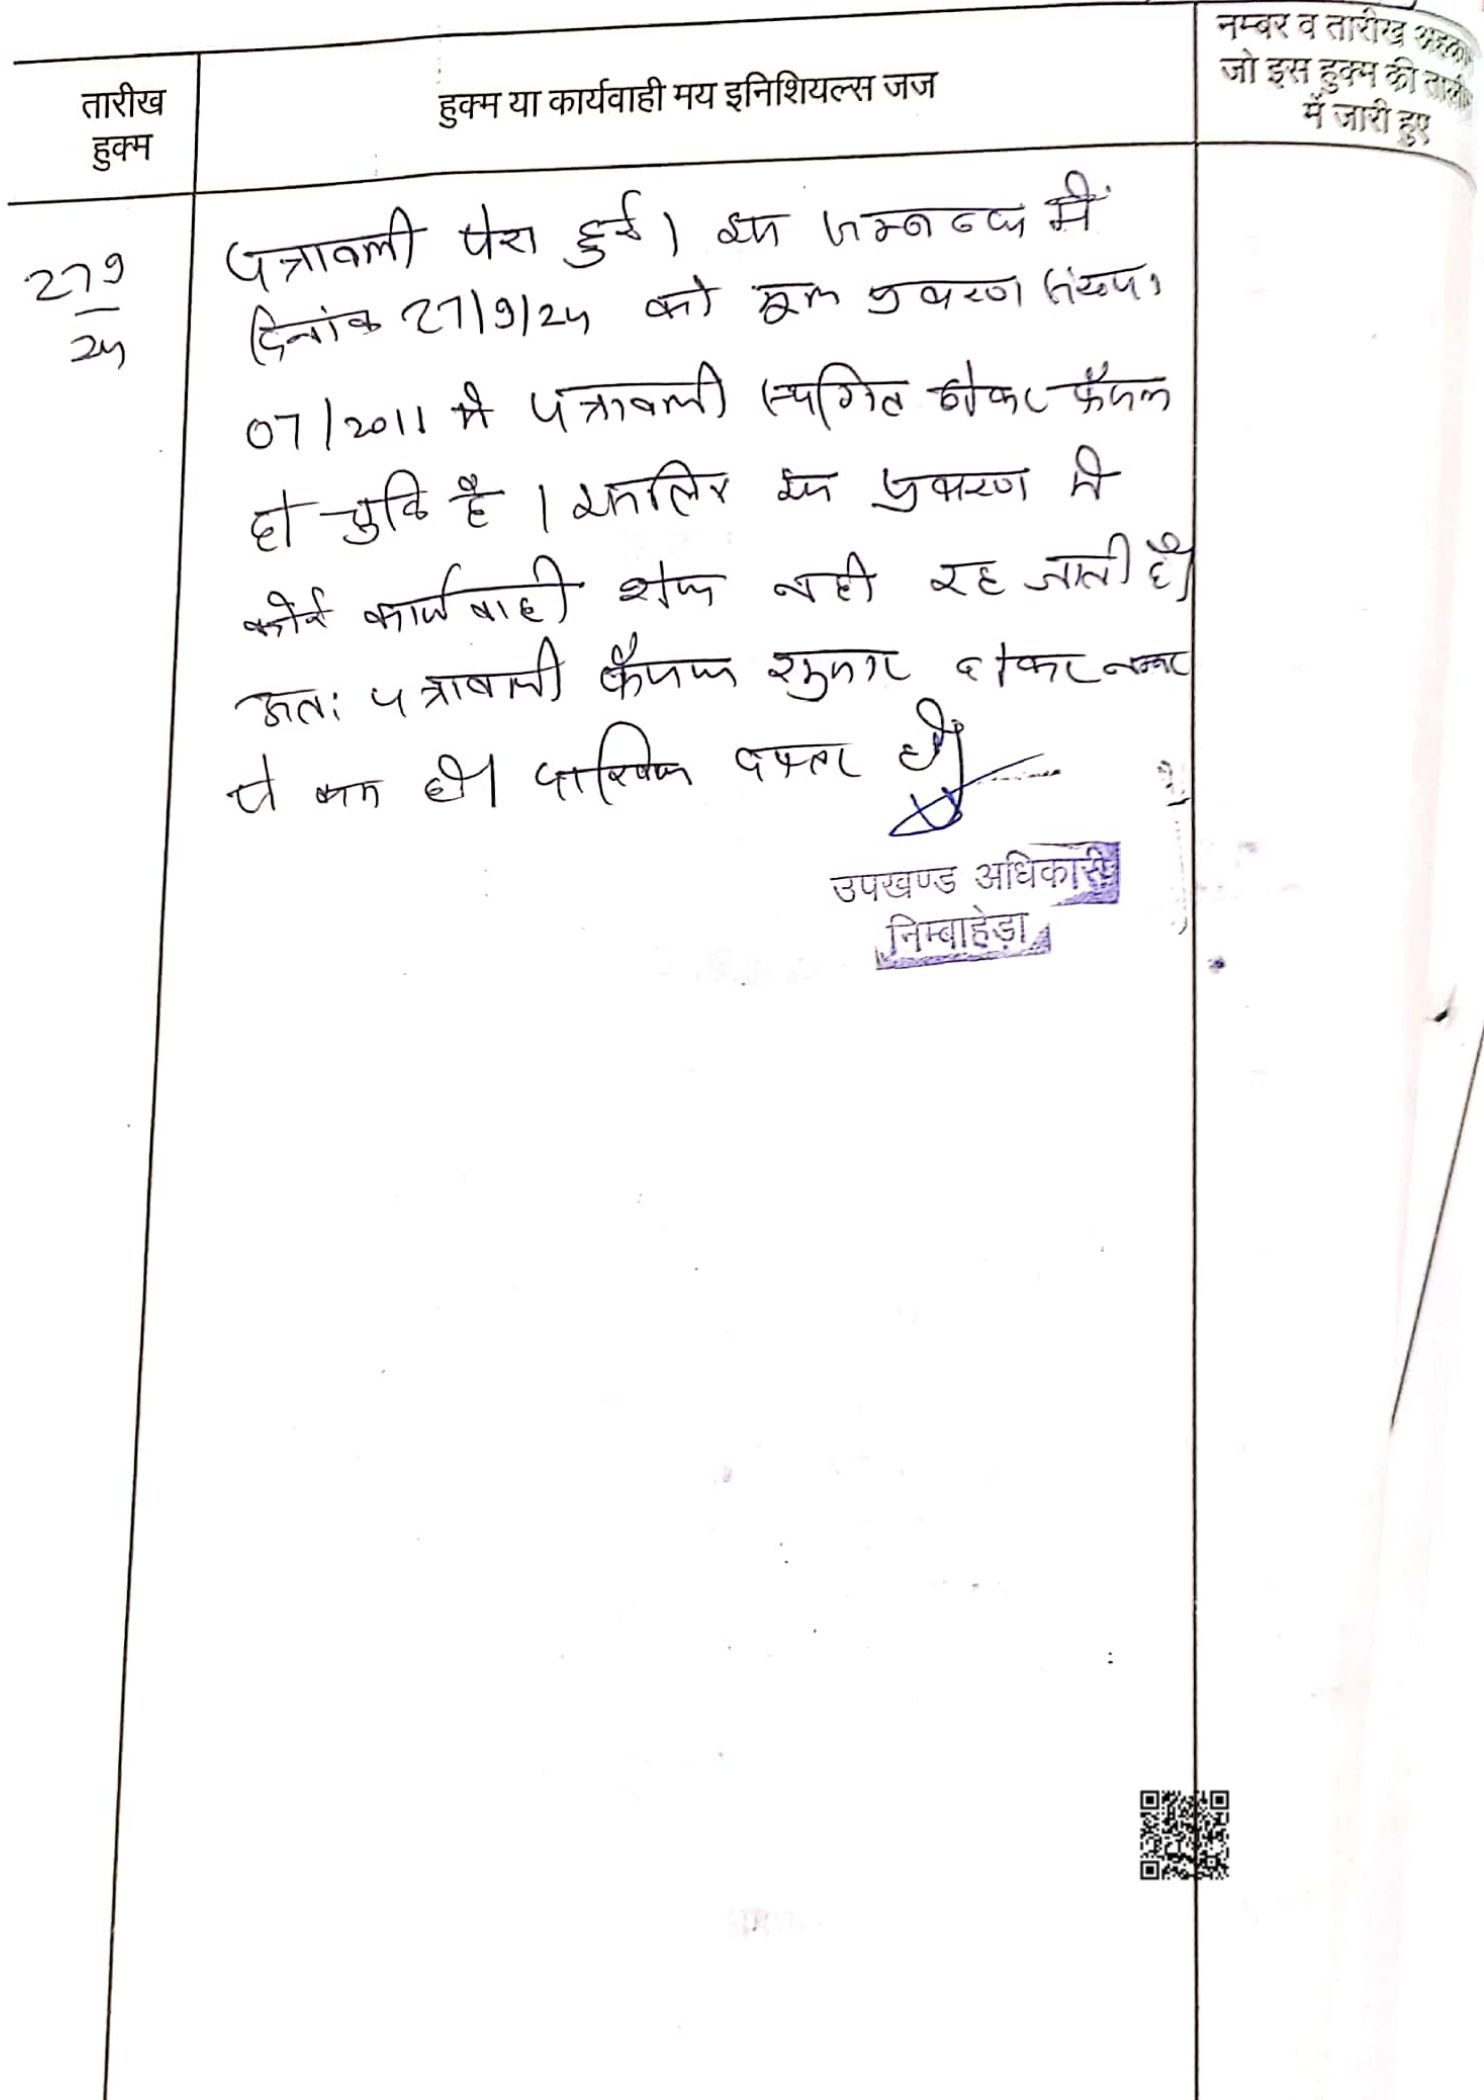 तारीख
हुक्म
हुक्म या कार्यवाही मय इनिशियल्स जज
नम्बर व तारीख
जो इस हुक्म की
में जारी हुए
27 9
24
पत्रावली पेश हुई। इस सम्बन्ध में
दिनांक 27/9/24 को मूल प्रकरण संख्या
07/2011 मे पत्रावली स्थगित होकर फैसल
हो चुकि है। इसलिए इस प्रकरण मे
कोई कार्यवाही शेष नही रह जाती है।
अतः पत्रावली फैसल शुमार होकर नम्बर
से कम हो। दाखिल दफ्तर हो।
उपखण्ड अधिकारी
निम्बाहेड़ा